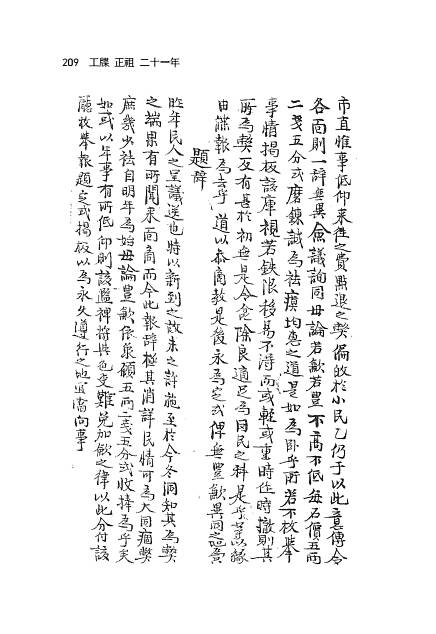 209 工牒 正祖 二十一年
市直惟事低仰來往之費點退之契偏攸於小民乙仍于以此意傳令
各面則一辞無異僉議詢同毋論若歉若豊不高不低每石價五兩
二戔五分式磨鍊誠爲祛瘼均惠之道是如爲卧乎所若不枚擧
事情揭板該庫視若鉄限移易不得而或輕或重時作時撤則其
所爲契反有甚於初無是令除良適足爲困民之科是乎等以緣
由牒報爲去乎 道以叅商教是後永爲定式俾無豊歉異同之意
題辞
昨年民人之呈議送也特以新到之故未之許施至於今冬洞知其爲契
之端果有所聞來面商而今此報辞極其消詳民情可爲大同痼契
庶幾少祛自明年爲始毋論豊歉依衆願五兩二戔五分式收捧爲乎矣
如或以年事有所低仰則該監裨將與色吏難免加歉之律以此分付該
廳枚擧報題定式揭板以爲永久遵行之地宜當向事